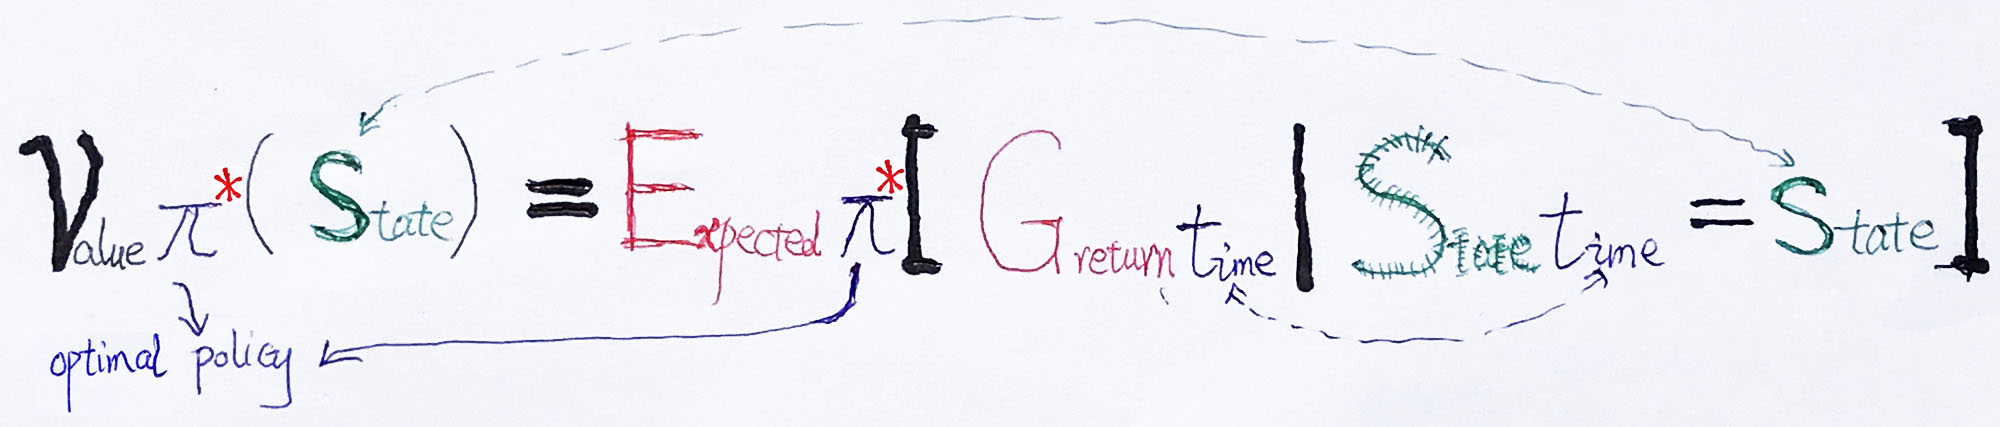 Value π* (State) = Expected π* [ G return time | State time = State ]
optimal policy